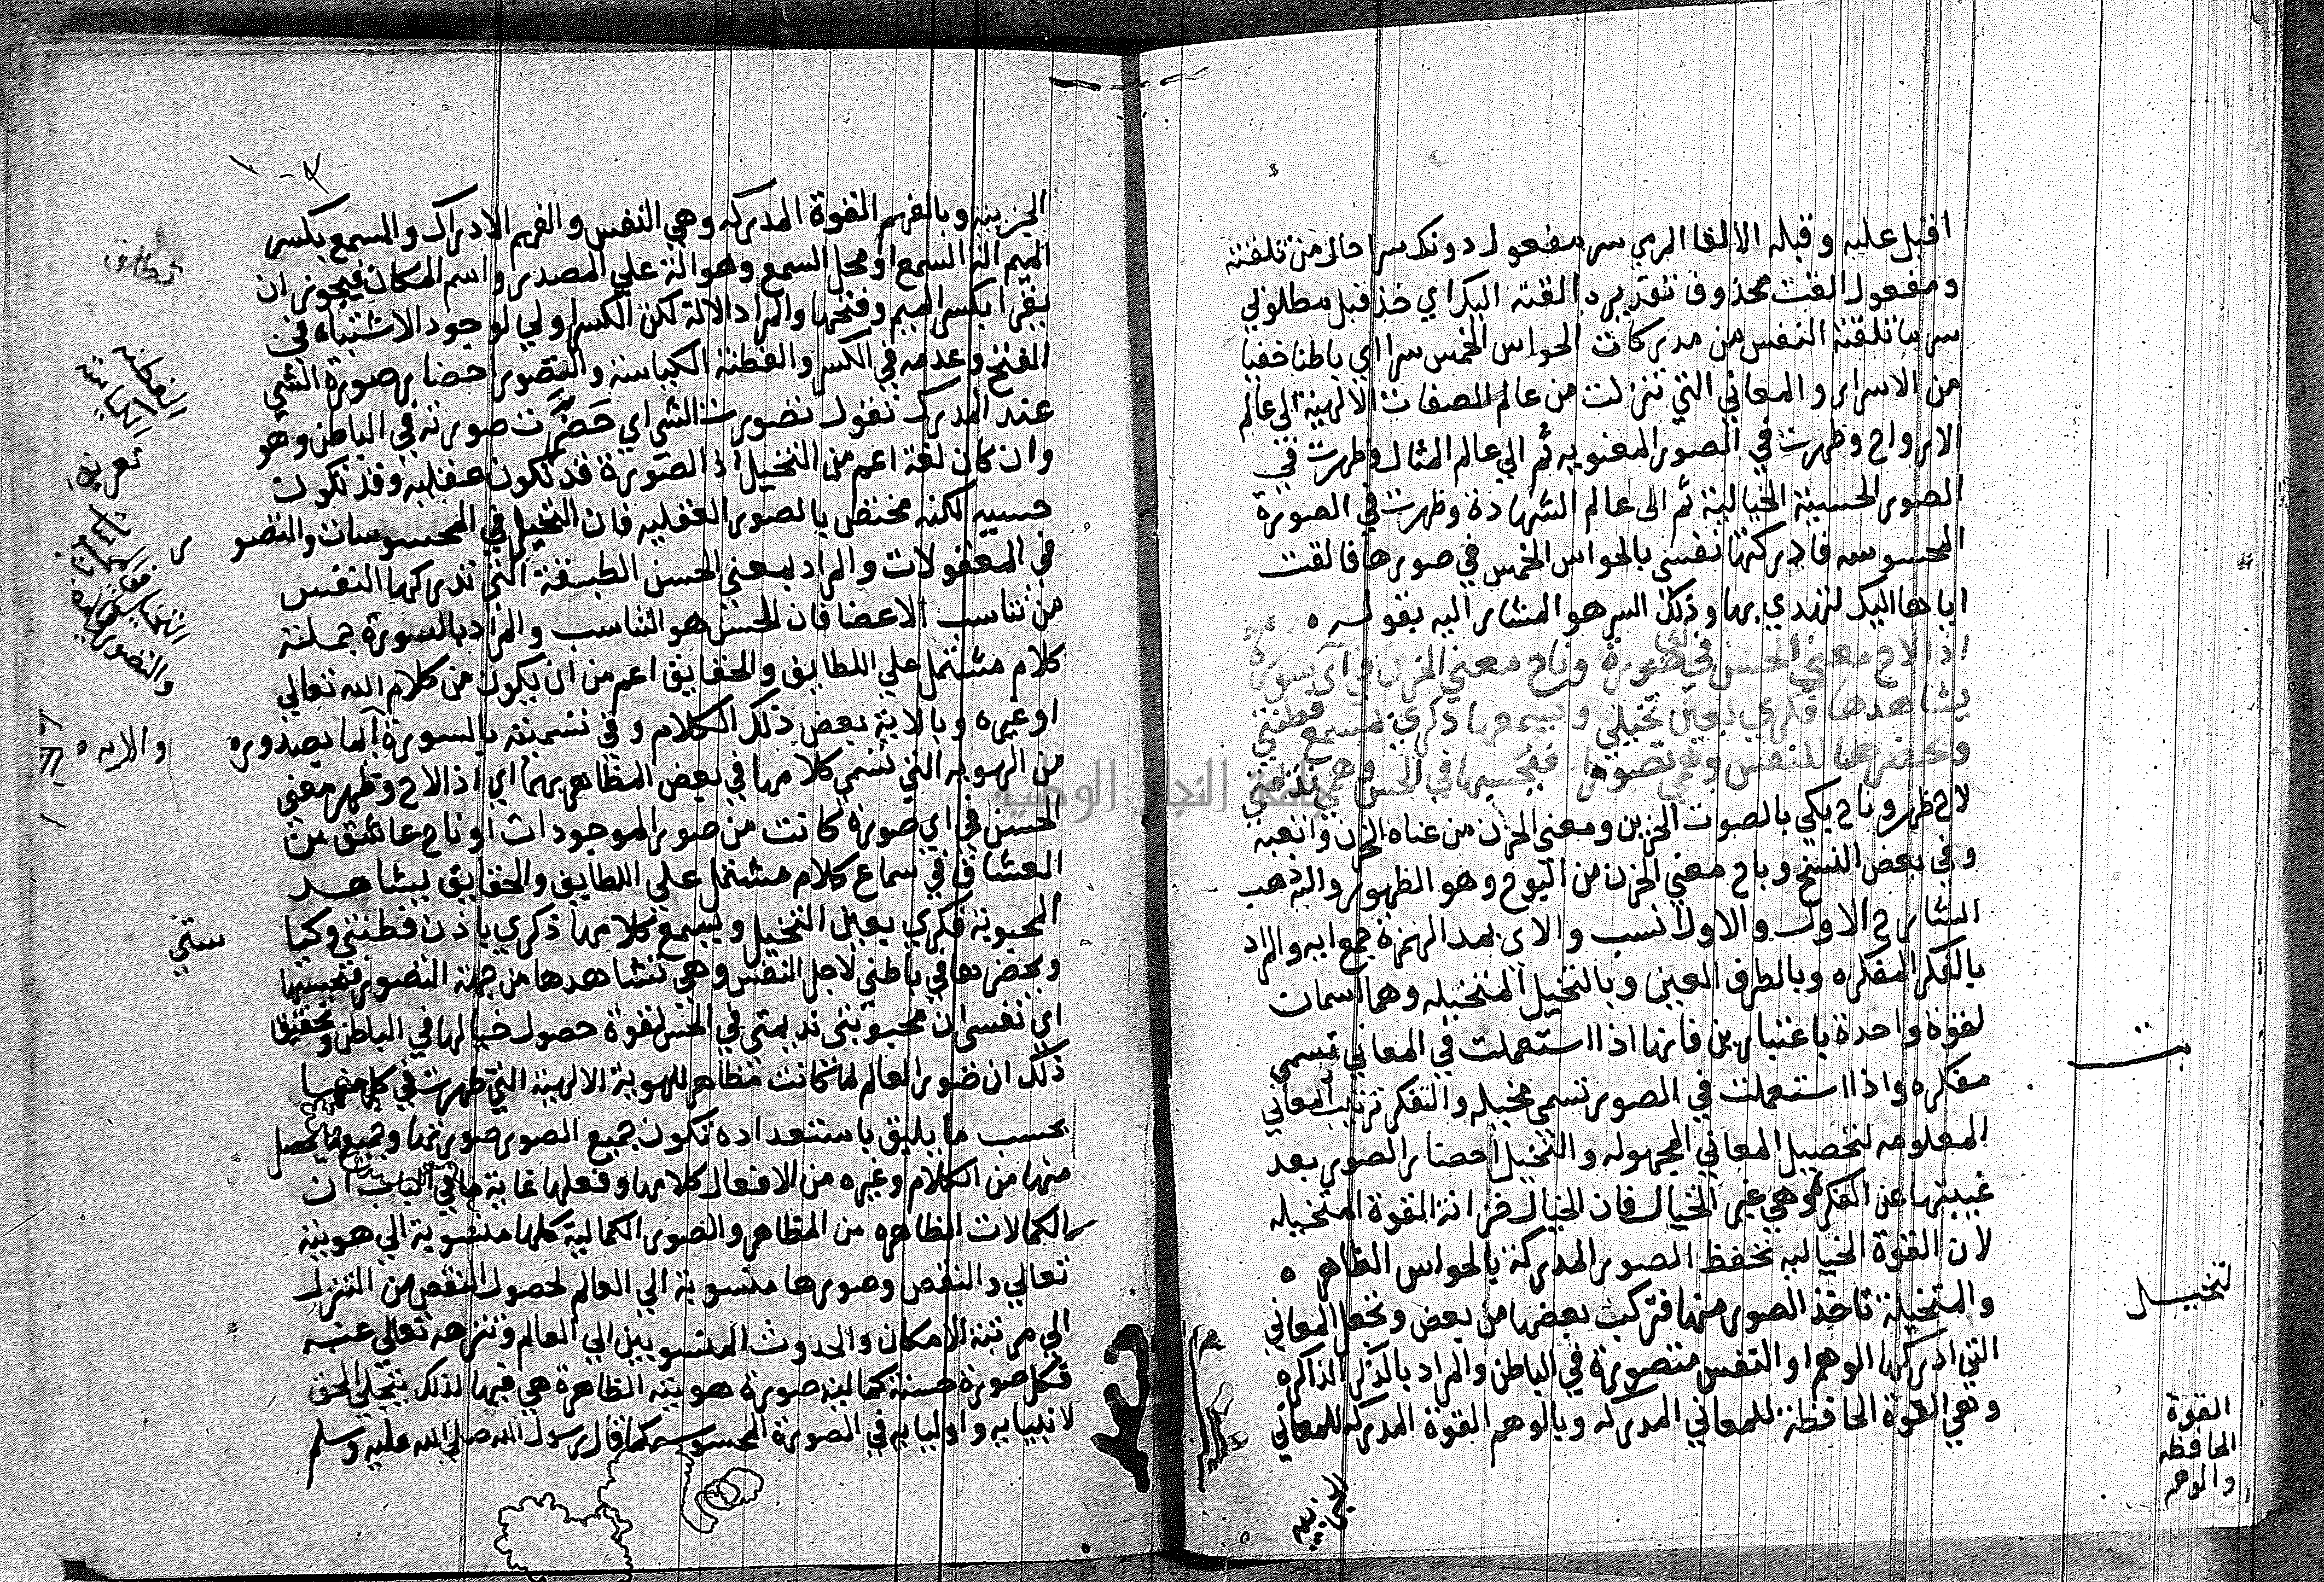 اقبل عليه وقبله الالقا الرمي سر مفعول دونك سرا حال من تلقته
ومفعول القت محذوف تقديره القته اليك اي خذ قبل مطلوبي
سر ما تلقته النفس من مدركات الحواس الخمس سرا اي باطنا خفيا
من الاسرار والمعاني التي تنزلت من عالم الصفات الالهية الى عالم
الارواح وظهرت في الصور المعنويه ثم الي عالم المثال وظهرت في
الصور الحسية الخيالية ثم الى عالم الشهادة وظهرت في الصورة
المحسوسه فادركتها نفسي بالحواس الخمس في صورها فالقت
اياها اليك لتهتدي بها وذلك السر هو المشار اليه بقوله ه
اذا لاح معني الحسن في اي صورة وناح معني الحزن في آي سورة
يشاهدها فكري بعين تخيلي ويسمعها ذكري بمسمع فطنتي
ويحضرها للنفس وهمي تصورا فيحسبها في الحس فهمي نديمتي
لاح ظهر وناح يكي بالصوت الحزين ومعنى الحزن من عناه الحزن واتعبه
وفي بعض النسخ وباح معني الحزن من البوح وهو الظهور واليه ذهب
الشارح الاول والاول انسب والآي بمد الهمزة جمع ايه والمراد
بالفكر المفكره وبالطرف العين وبالتخيل المتخيله وهما اسمان
لقوة واحدة باعتبارين فانها اذا استعملت في المعاني تسمى
مفكره واذا استعملت في الصور تسمى مخيله والتفكر ترتيب المعاني
المعلومه لتحصيل المعاني المجهوله والتخيل احضار الصور بعد
غيبتها عن الفكر وهي غير الخيال فان الخيال خزانة القوة المتخيله
لان القوة الخياليه تحفظ الصور المدركة بالحواس الظاهره ه
والمتخيلة تاخذ الصور منها فتركب بعضها من بعض وتجعل المعاني
التي ادركها الوهم او النفس متصورة في الباطن والمراد بالذكر الذاكره
وهي القوة الحافظة للمعاني المدركه وبالوهم القوة المدركه للمعاني
الجزييه
تخيل
القوة
الحافظه
والوهم
الجزييه وبالفهم القوة المدركه وهي النفس والفهم الادراك والمسمع بكسر
الميم الة السمع او محل السمع وهو الة علي المصدر واسم المكان فيجوز ان
يقرا بكسر الميم وفتحها والمراد الالة لكن الكسر اولي لوجود الاشتباه في
الفتح وعدمه في الكسر والفطنة الكياسة والتصور احضار صورة الشي
عند المدرك تقول تصورت الشي اي حضرت صورته في الباطن وهو
وان كان لغة اعم من التخيل اذ الصورة قد تكون عقليه وقد تكون
حسيه لكنه مختص بالصور العقليه فان التخيل في المحسوسات والتصور
في المعقولات والمراد بمعني الحسن الطبيقة التي تدركها النفس
من تناسب الاعضا فان الحسن هو التناسب والمراد بالسورة جملة
كلام مشتمل علي اللطايف والحقايق اعم من ان يكون من كلام الله تعالي
او غيره وبالاية بعض ذلك الكلام وفي تسميته بالسورة
من الهويه التي تسمي كلامها في بعض المظاهر بهما اي اذا لاح وظهر معني
الحسن في اي صورة كانت من صور الموجودات او ناح عاشق من
العشاق في سماع كلام مشتمل علي اللطايف والحقايق يشاهد
المحبوبة فكري بعين التخيل ويسمع كلامها ذكري باذن فطنتي وكيا
ويحضرها في باطني لاجل النفس وهي تشاهدها من جهة التصور فيحسبها
اي نفسي ان محبوبتي نديمتي في الحس لقوة حصول خيالها في الباطن وتحقيق
ذلك ان صور العالم لما كانت مظاهر للهوية الالهية التي ظهرت في كل منها
بحسب ما يليق باستعداده تكون جميع الصور صورتها وجميع ما يحصل
منها من الكلام وغيره من الافعال كلامها وفعلها غاية ما في الباب ان
الكمالات الظاهره من المظاهر والصور الكمالية كلها منسوبة الي هويته
تعالي والنقص وصورها منسوبة الي العالم لحصول النقص من التنزل
الي مرتبة الامكان والحدوث المنسوبين الي العالم وتنزهه تعالي عنه
فكل صورة حسنة كماليه صورة هويته الظاهرة هي فيها لذلك يتجلي الحق
لانبيايه واوليايه في الصورة المحسوسه كما قال رسول الله صلي الله عليه وسلم
والايه ه
ستي